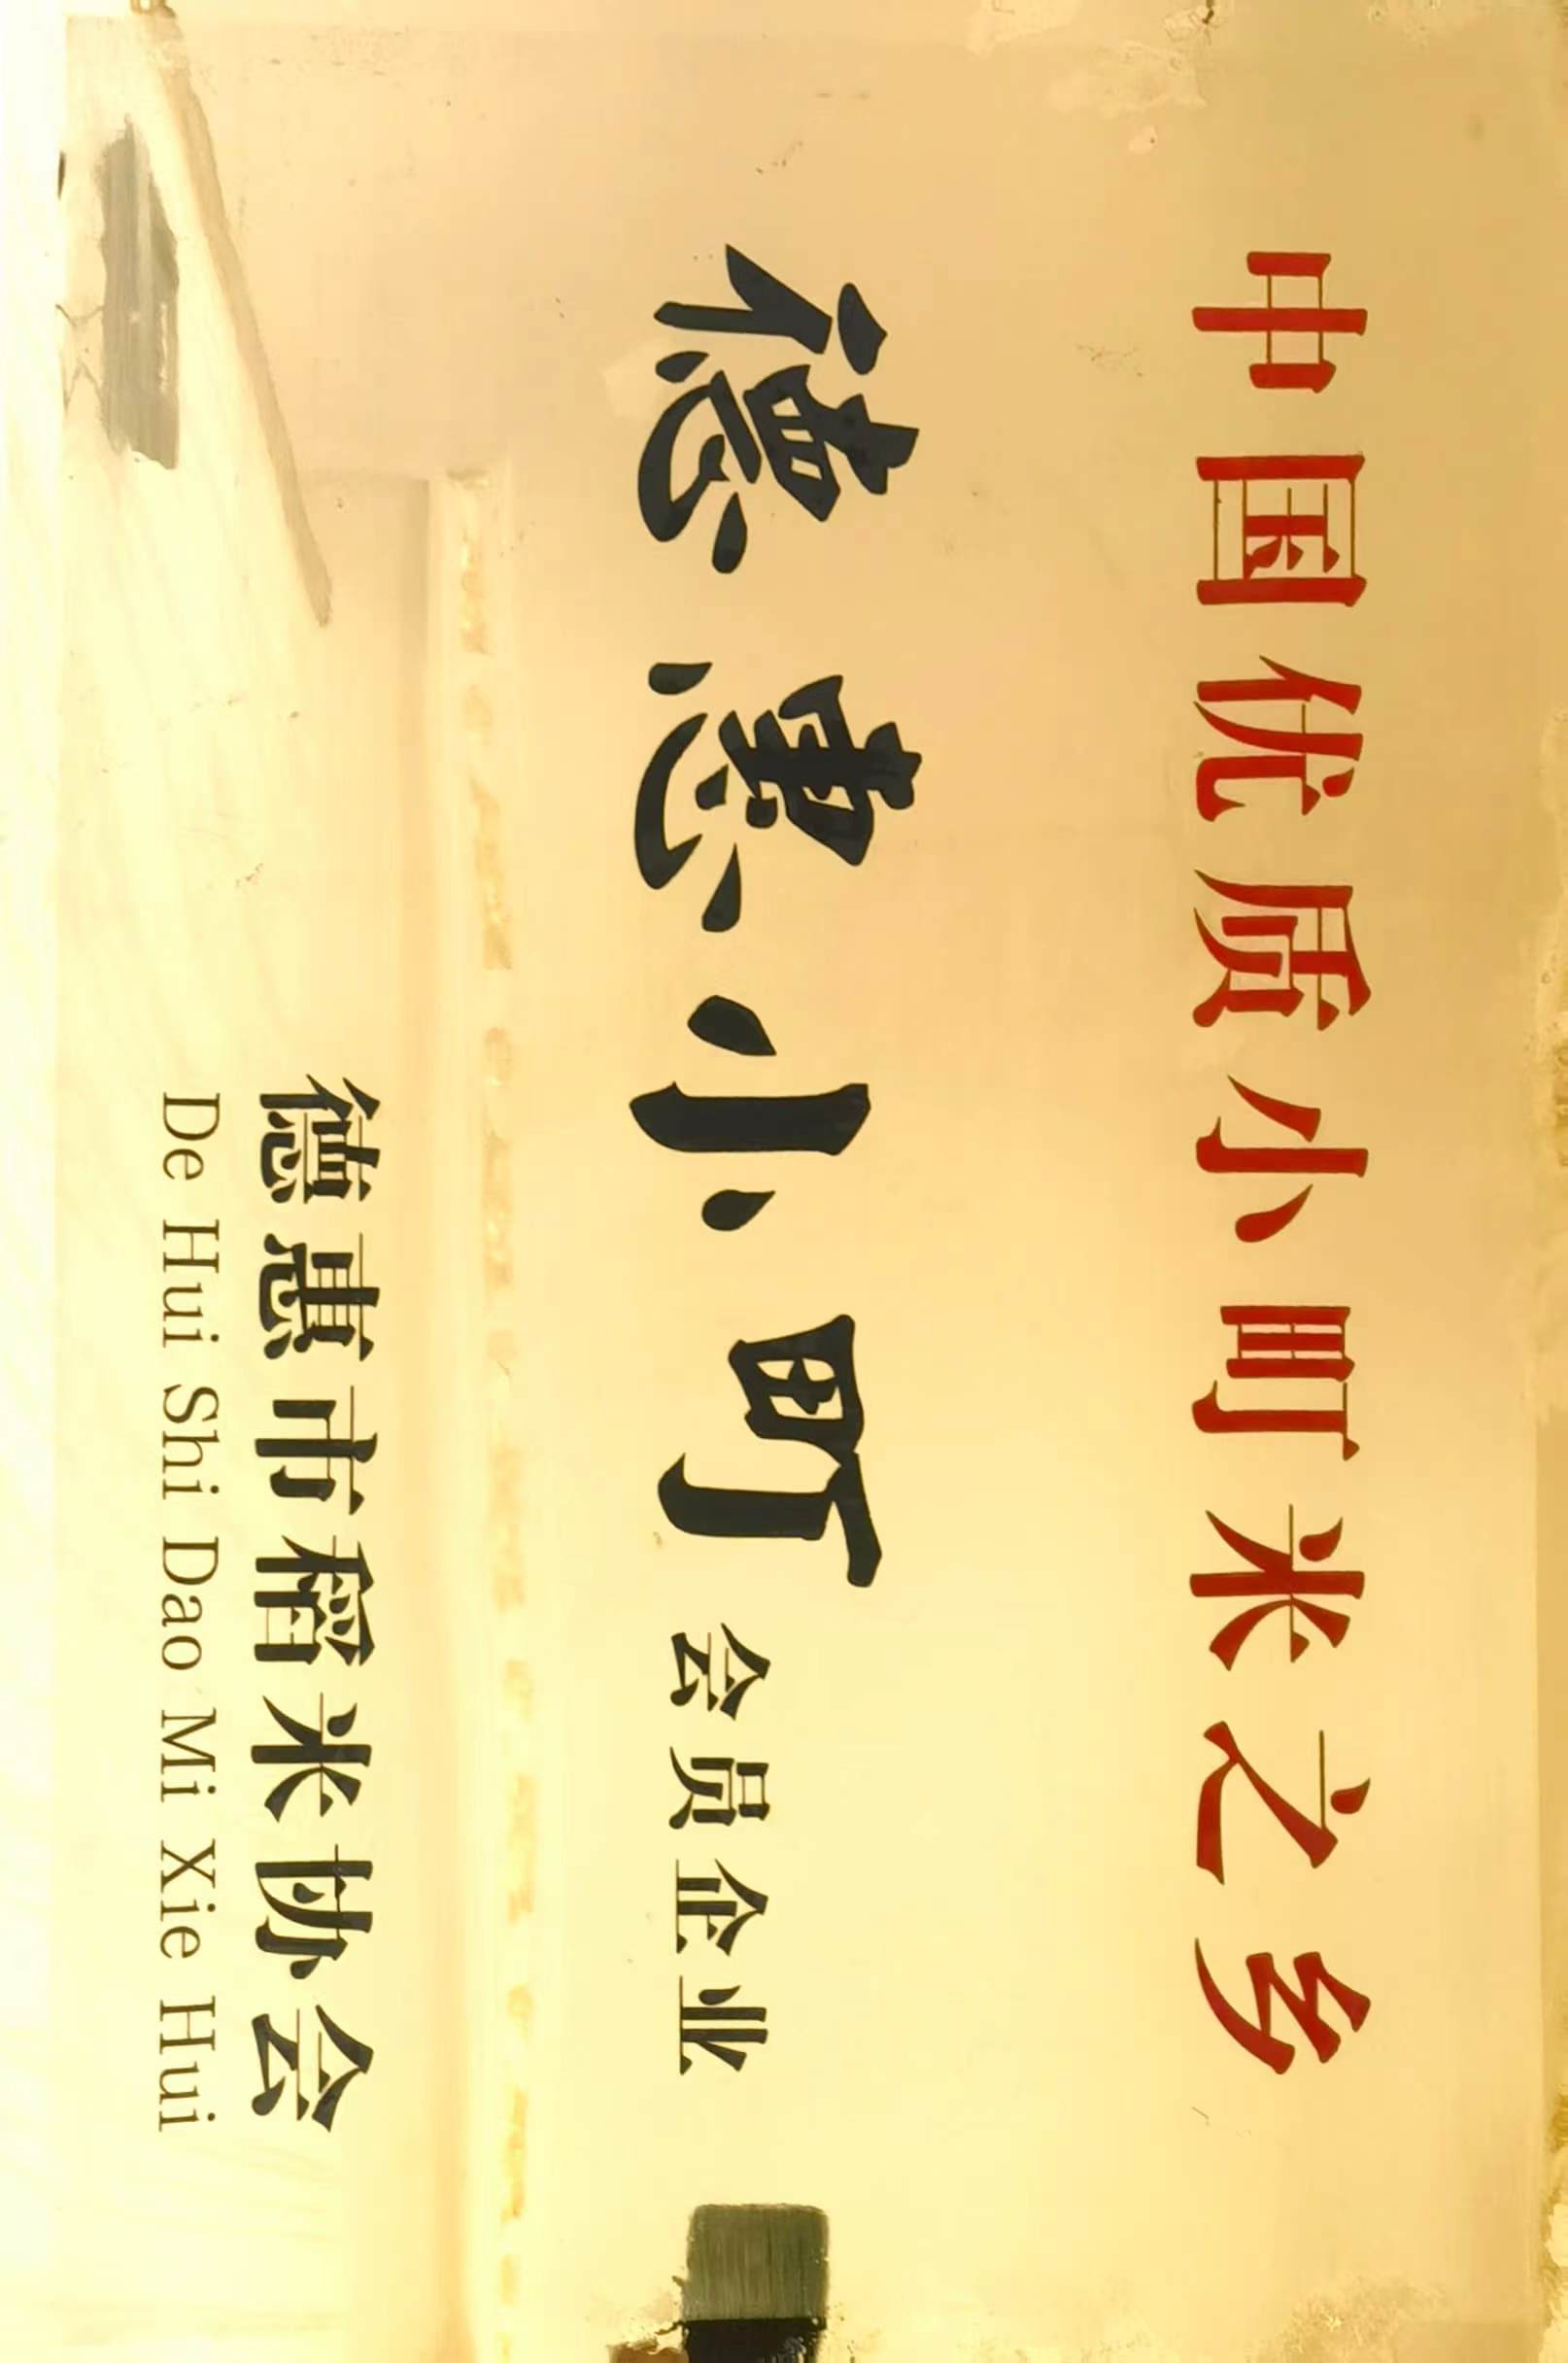 中国优质小町米之乡
德惠小町 会员企业
德惠市稻米协会
De Hui Shi Dao Mi Xie Hui